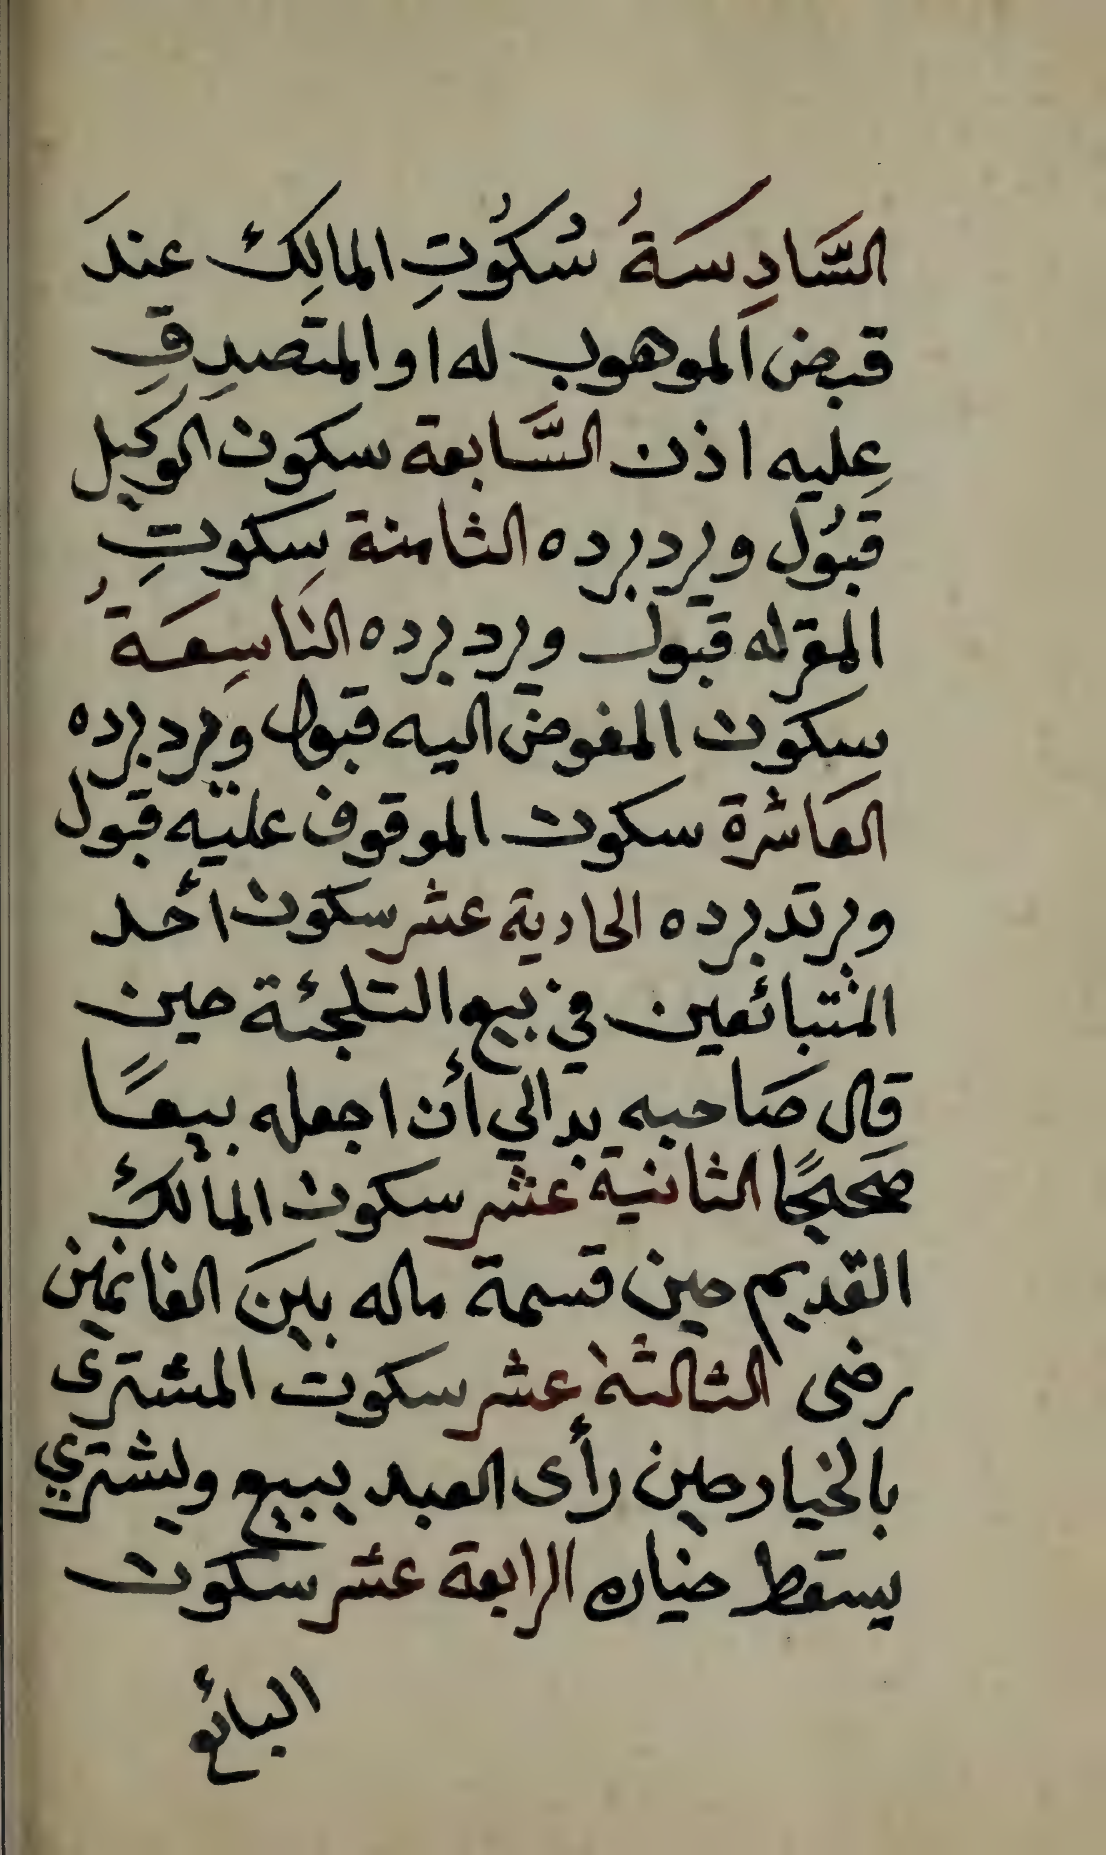 السَّادِسَةُ سُكُوتِ المالِك عندَ
قبض الموهوب له او المتصدِقِ
عليه اذن السَّابعة سكوت الوكيل
قبُول ويرد برده الثامنة سكوتِ
المقرله قبول ويرد برده التاسِعَةُ
سكوت المفوض اليه قبول ويرد برده
العاشرة سكوت الموقوف عليه قبول
ويرتد برده الحادية عشر سكوت أحد
المتبائعين في بيع التلجئة حين
قال صَاحبه بدالي أن اجعله بيعًا
صَحيحًا الثانية عشر سكوت المالك
القديم حين قسمة ماله بينَ الغانمين
رضى الثالثة عشر سكوت المشترى
بالخيار حين رأى العبد يبيع ويشتري
يسقط خياره الرابعة عشر سكوت
البائع